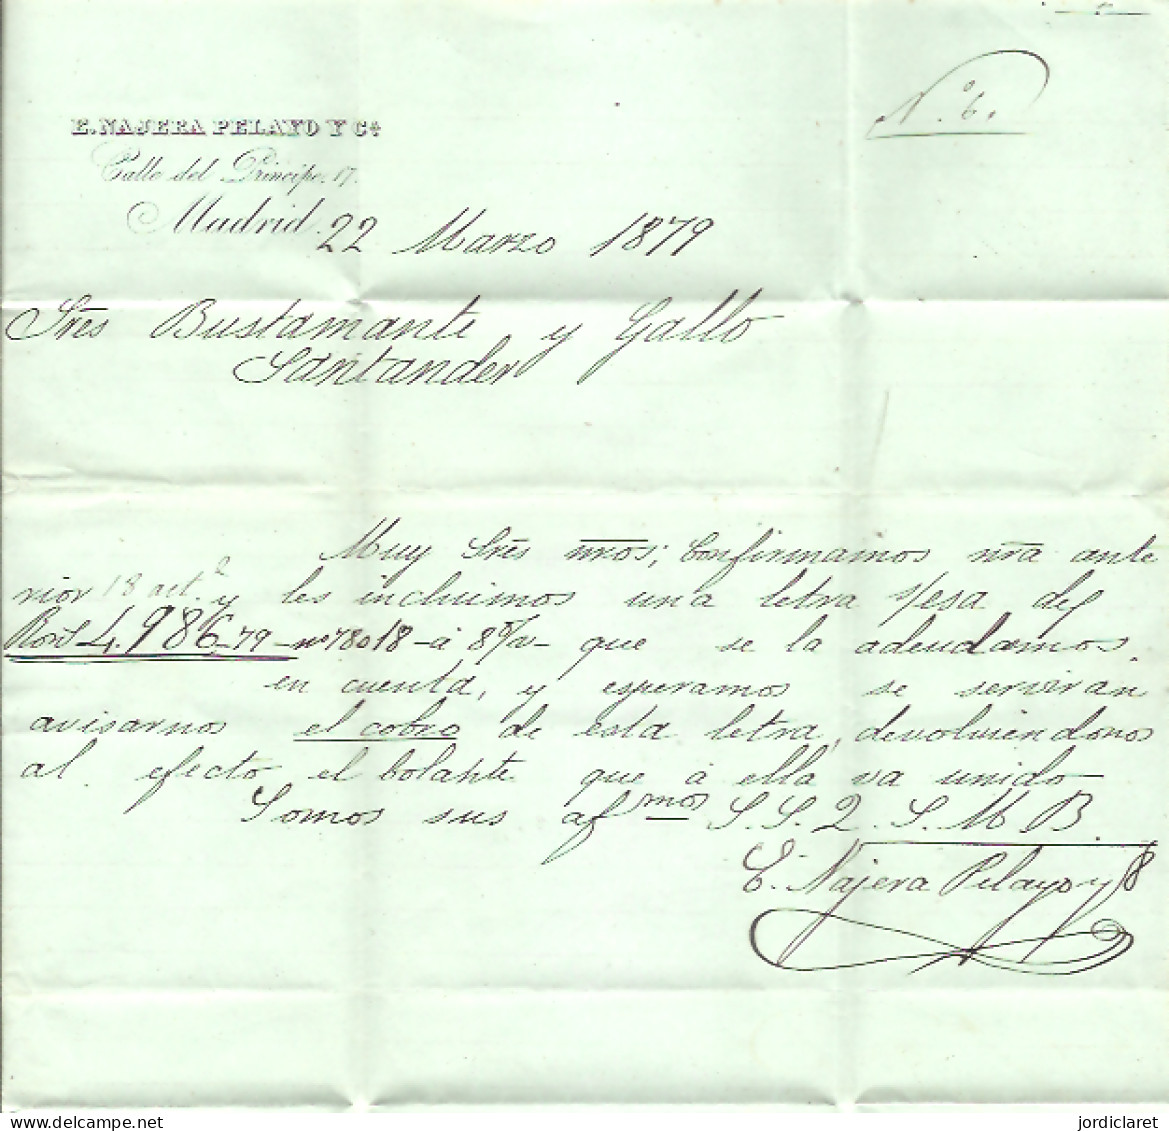 Nº 6.
E. NAJERA PELAYO Y Cª
Calle del Principe, 17.
Madrid 22 Marzo 1879
Sres Bustamante y Gallo
Santander
Muy Sres nros; Confirmamos nra ante
rior 18 act.º y les incluimos una letra s/esa de
Rvon 4.986-79-nº78018-á 8 d/v- que se la adeudamos
en cuenta, y esperamos se servirán
avisarnos el cobro de esta letra, devolviendonos
al efecto, el bolante que á ella va unido
Somos sus afmos S. S. Q. S. M B.
E. Najera Pelayo y Cª
www.delcampe.net
jordiclaret